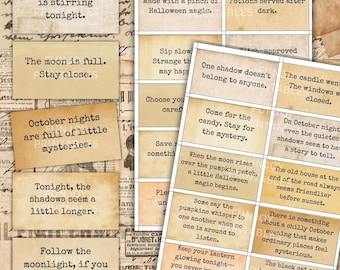 is stirring
tonight.
The moon is full.
Stay close.
October nights
are full of little
mysteries.
Tonight, the
shadows seem a
little longer.
Follow the
moonlight, if you
made with a pinch of
Halloween magic.
Potions served after
dark.
Sip slow
Strange th
may happ
approved
Choose you
care
Save
some
One shadow doesn't
belong to anyone.
The candle went
The windows w
closed.
Come for the
candy. Stay for
the mystery.
On October night
even the quietes
shadows seem to ha
a story to tell.
When the moon rises
over the pumpkin patch,
a little Halloween
magic begins.
The old house at
end of the road always
seems friendlier
before sunset.
Some say the
pumpkins whisper to
one another when no
one is around to
listen.
There is something
about a chilly October
evening that makes
ordinary places feel
mysterious.
Keep your lantern
glowing tonight
you never
The black cat